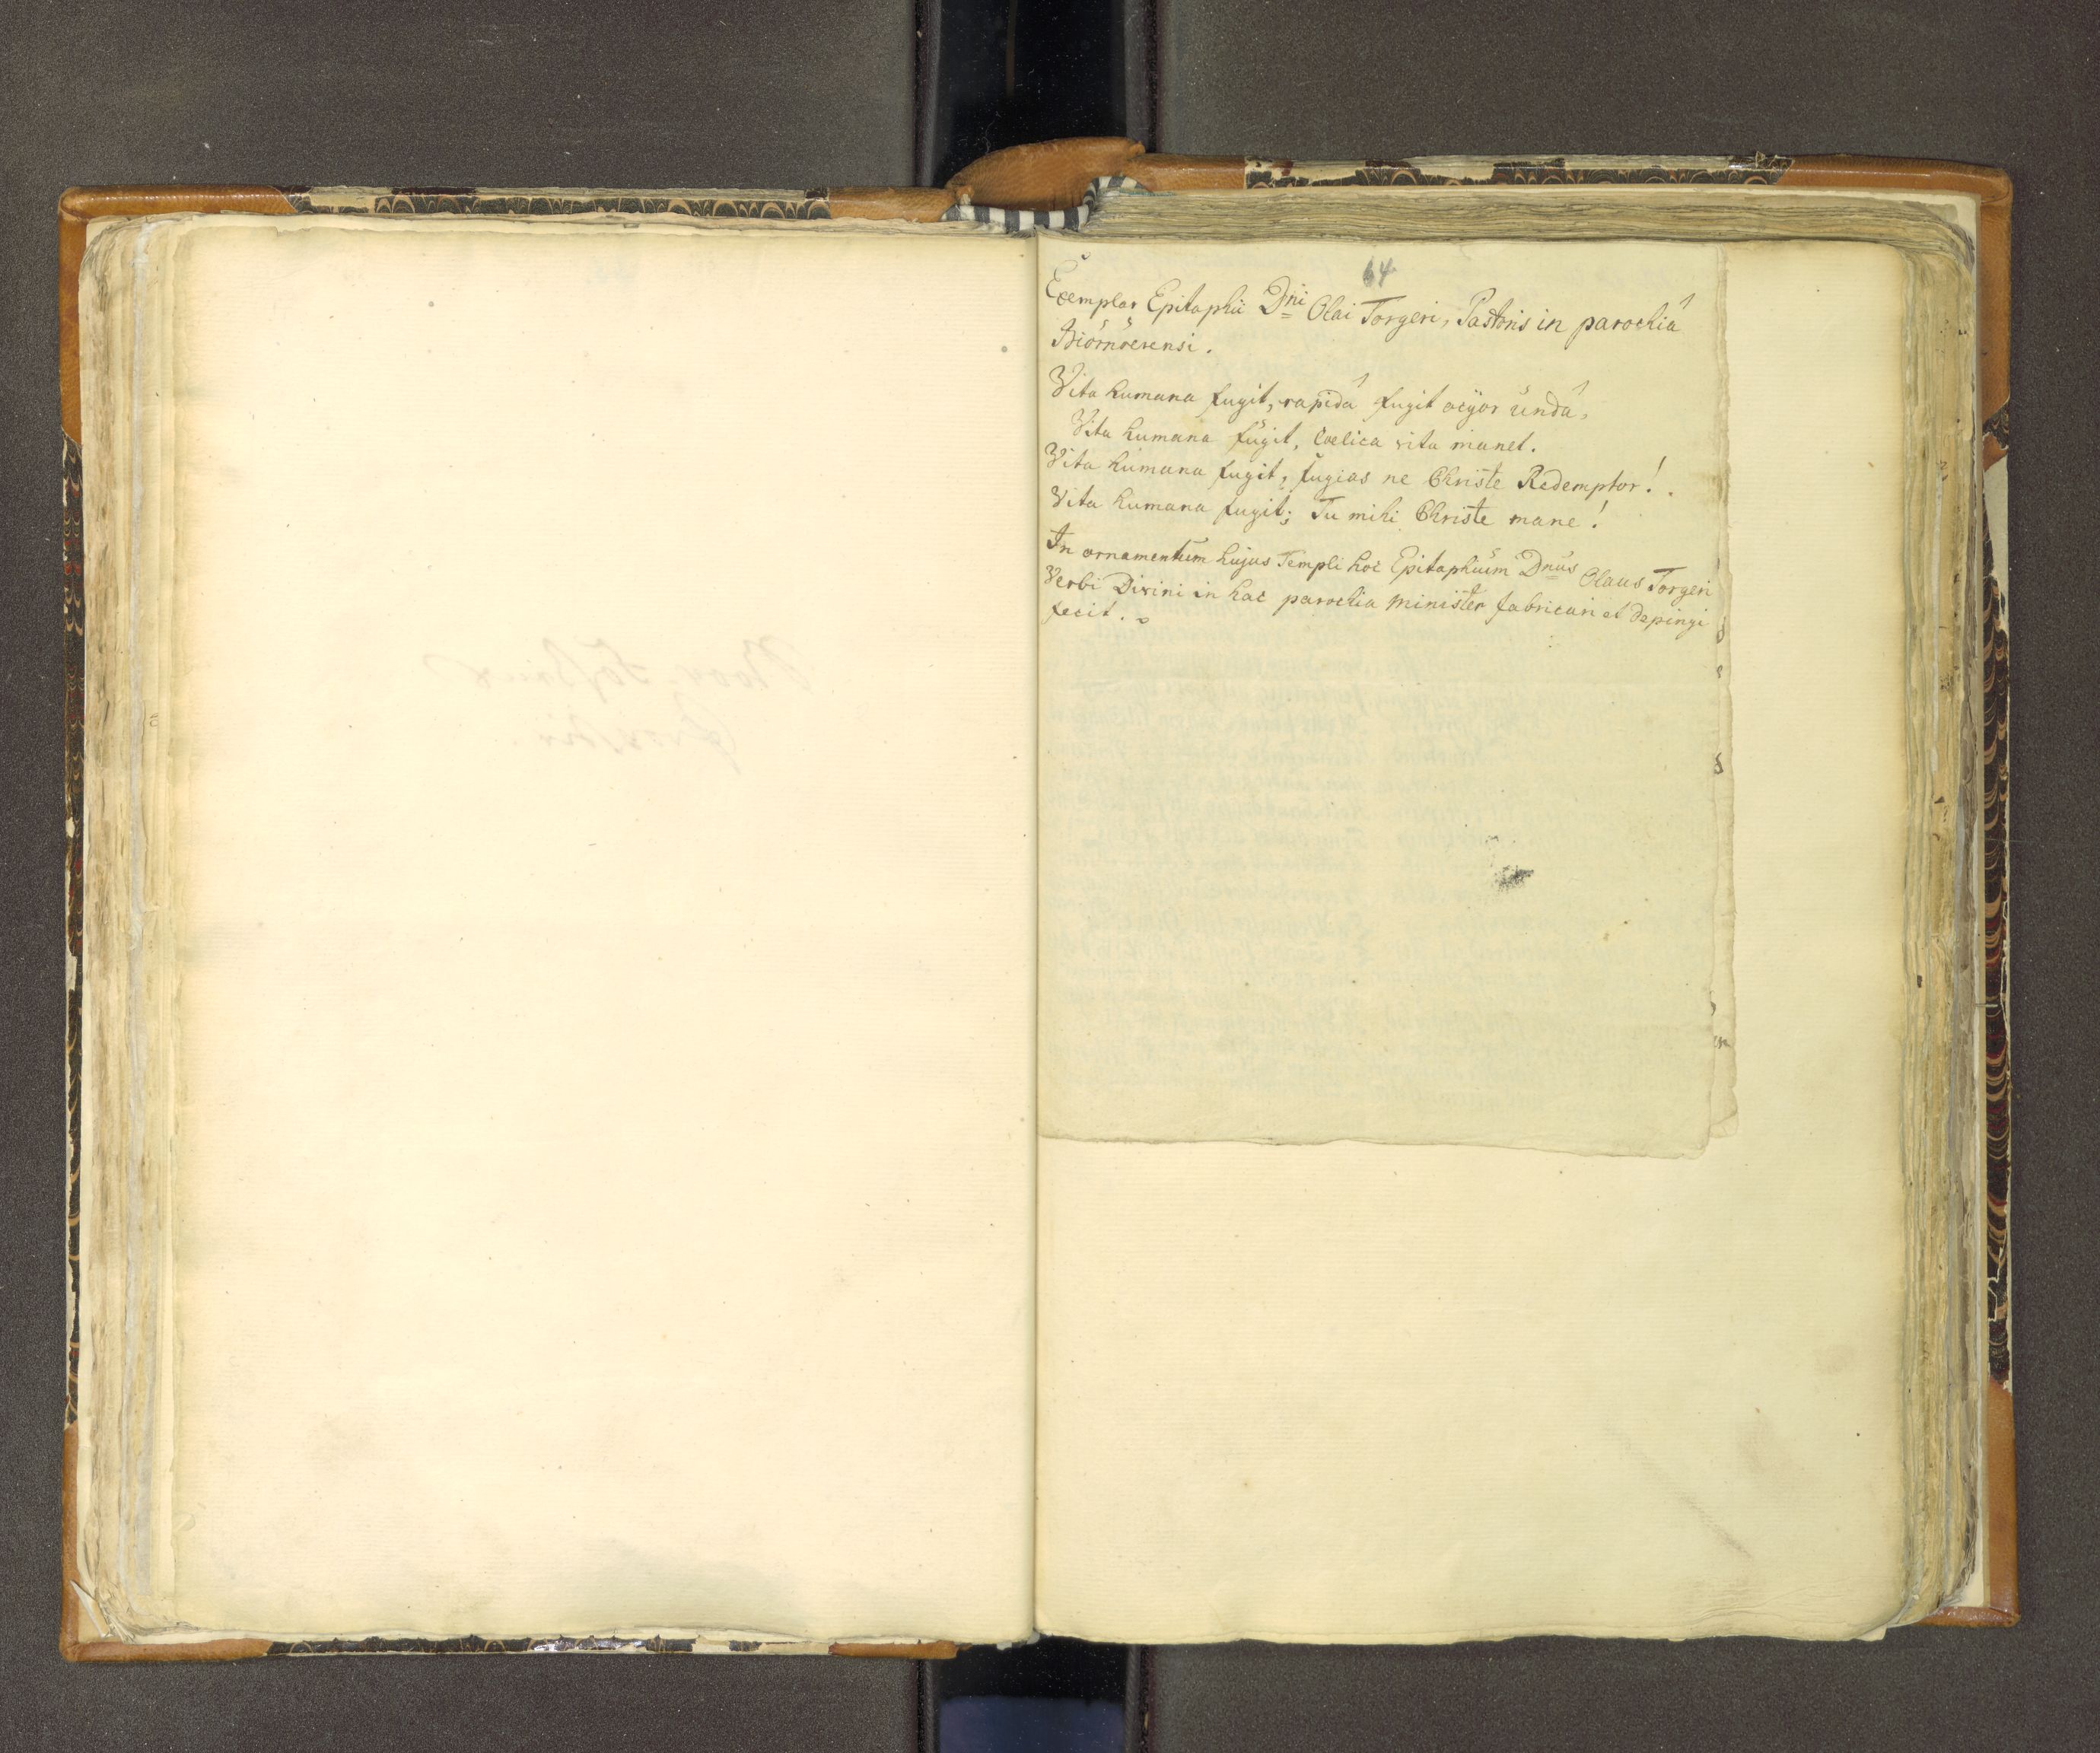 64
Exemplar Epitaphii Dni Olai Torgeri, Pastoris in parochiâ
Biörnörensi.
Vita humana fugit, rapidâ fugit ocÿor undâ,
Vita humana fugit, Coelica vita manet.
Vita humana fugit, fugias ne Christe Redemptor!.
Vita humana fugit; Tu mihi Christe mane!
In ornamentum hujus Templi hoc Epitaphium Dnus Olaus Torgeri
Verbi Divini in hac parochia Minister fabricari et depingi
fecit.